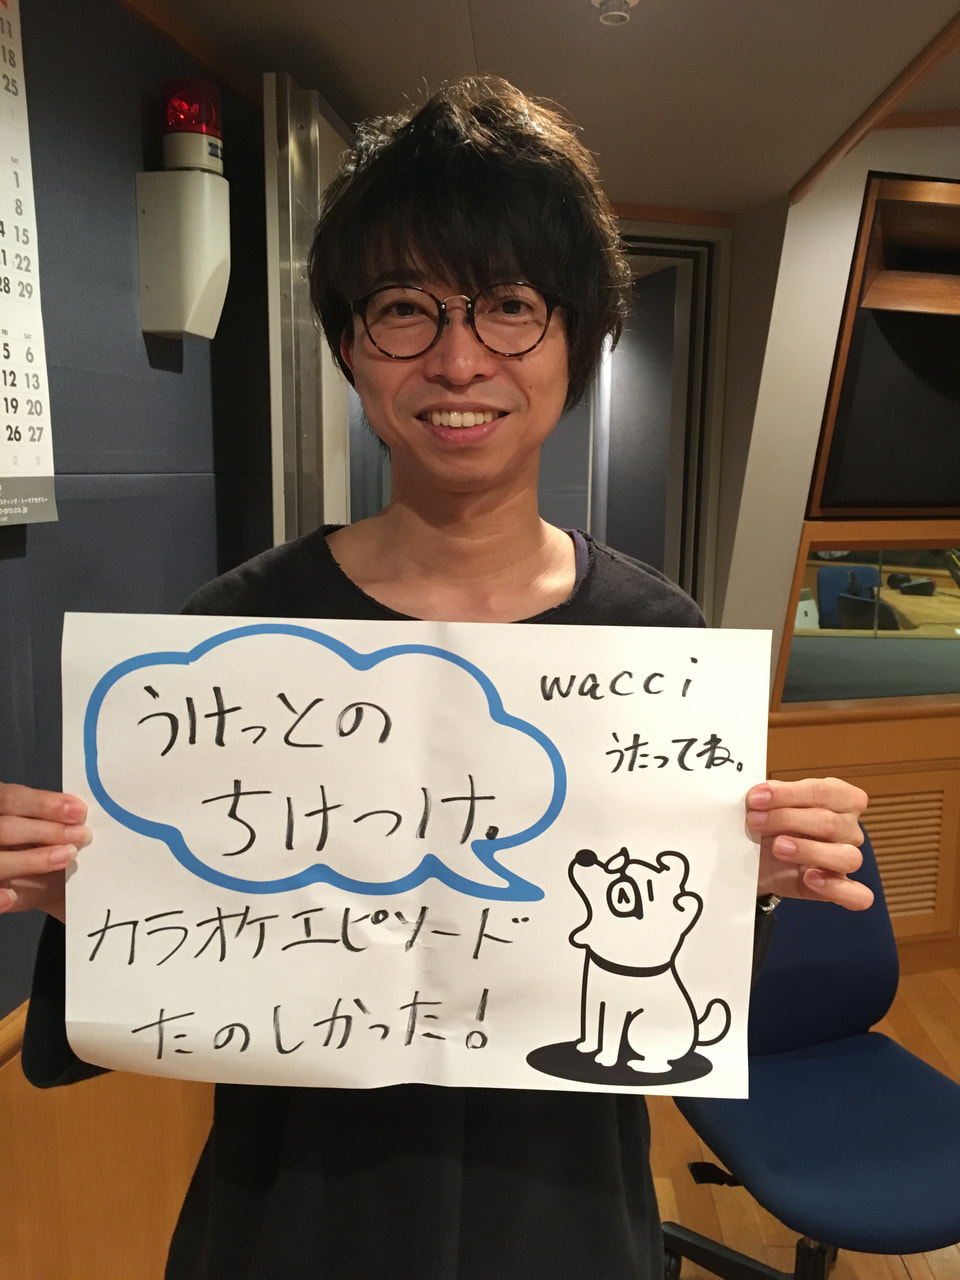 11
18
25
SAT
1
8
15
21 22
28 29
FRI SAT
5 6
12 13
19 20
26 27
2 3
o-pro.co.jp
wacci
うたってね。
うけっとの
ちけっけ。
カラオケエピソード
たのしかった！